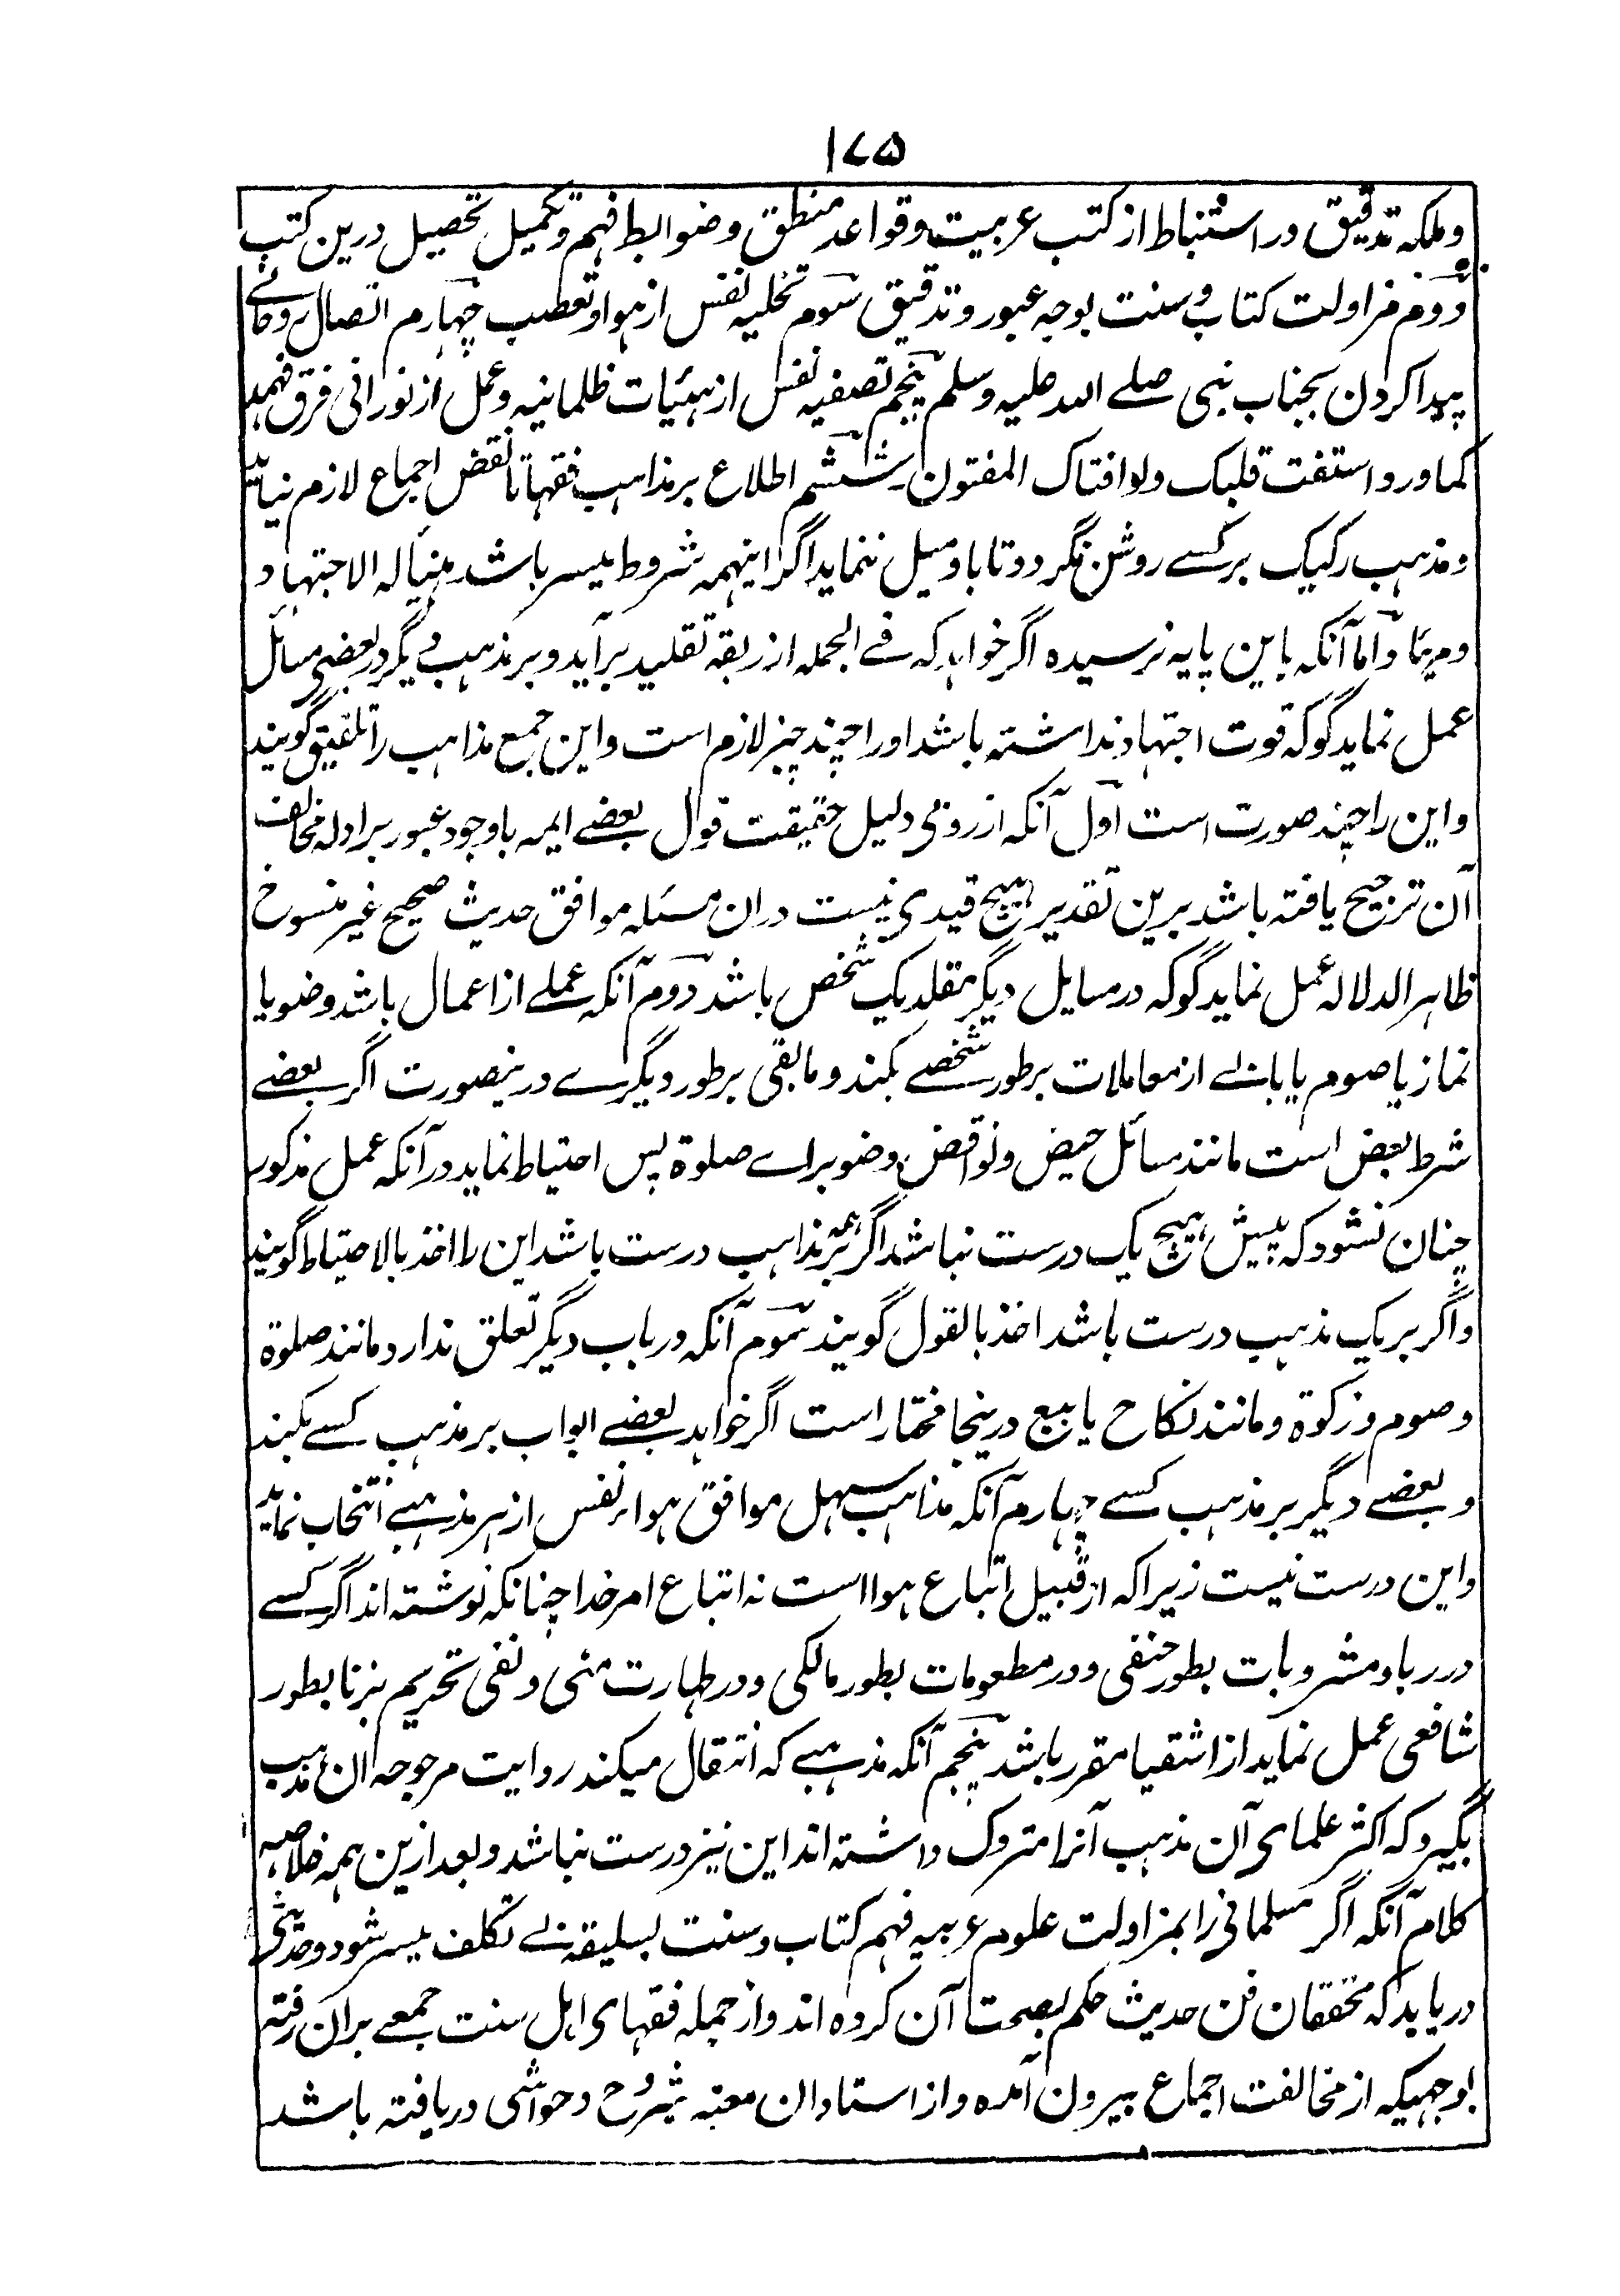 ۱۷۵
وملکه تدقیق در استنباط از کتب عربیت وقواعد منطق وضوابط فهم وتکمیل تحصیل درین کتب
دوم مزاولت کتاب وسنت بوجه عبور وتدقیق سوم تخلیه نفس از هوا وتعصب چهارم اتصال روحانے
پیدا کردن بجناب نبی صلے الله علیه وسلم پنجم تصفیه نفس از هیئیات ظلمانیه وعمل از نورانی فرق فهمد
کما ورد استفت قلبک ولو افتاک المفتون ششم اطلاع بر مذاهب فقها تا نقض اجماع لازم نیاید
ومذهب رکیک بر کسے روشن نگردد تا با و میل ننماید اگر اینهمه شروط میسر باشد هنیأ له الاجتهاد
ومریئا واما آنکه باین پایه نرسیده اگر خواهد که فے الجمله از ربقه تقلید برآید و بر مذهب دیگر در بعضی مسائل
عمل نماید گو که قوت اجتهاد نداشته باشد او را چند چیز لازم است واین جمع مذاهب را تلفیق گویند
واین را چند صورت است اول آنکه از روی دلیل حقیقت قول بعضے ایمه باوجود عبور بر ادله مخالف
آن ترجیح یافته باشد برین تقدیر هیچ قیدی نیست دران مسئله موافق حدیث صحیح غیر منسوخ
ظاهر الدلاله عمل نماید گو که در مسایل دیگر مقلد یک شخص باشد دوم آنکه عملے از اعمال باشد وضو یا
نماز یا صوم یا بابے از معاملات بر طور شخصے بکند و مابقی بر طور دیگرے درینصورت اگر بعضے
شرط بعض است مانند مسائل حیض و نواقض وضو براے صلوة پس احتیاط نماید در آنکه عمل مذکور
چنان نشود که پیش هیچ یک درست نباشد اگر بر همه مذاهب درست باشد این را اخذ بالاحتیاط گویند
واگر بر یک مذهب درست باشد اخذ بالقول گویند سوم آنکه در باب دیگر تعلق ندارد مانند صلوة
وصوم وزکوة ومانند نکاح یا بیع درینجا مختار است اگر خواهد بعضے ابواب بر مذهب کسے بکند
وبعضے دیگر بر مذهب کسے چهارم آنکه مذاهب سهل موافق هواء نفس از هر مذهبے انتخاب نماید
واین درست نیست زیرا که از قبیل اتباع هوا است نه اتباع امر خدا چنانکه نوشته اند اگر کسے
در ربا ومشروبات بطور حنفی ودر مطعومات بطور مالکی ودر طهارت منی ونفی تحریم بزنا بطور
شافعی عمل نماید از اشقیا مقرر باشد پنجم آنکه مذهبے که انتقال میکند روایت مرجوحه ان مذهب
بگیرد که اکثر علمای آن مذهب آنرا متروک داشته اند این نیز درست نباشد وبعد ازین همه خلاصه
کلام آنکه اگر مسلمانی را بمزاولت علوم عربیه فهم کتاب وسنت بسلیقه بے تکلف میسر شود وحدیثی
دریابد که محققان فن حدیث حکم بصحت آن کرده اند و از جمله فقهای اهل سنت جمعے بران رفته
بوجهیکه از مخالفت اجماع بیرون آمده و از استادان معتبه شروح وحواشی دریافته باشد